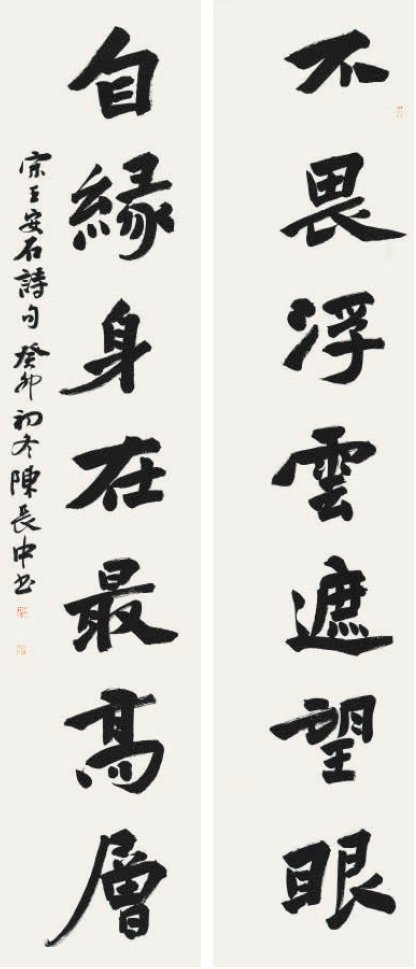 不畏浮雲遮望眼
自緣身在最高層
宋王安石詩句 癸卯初冬陳長中书